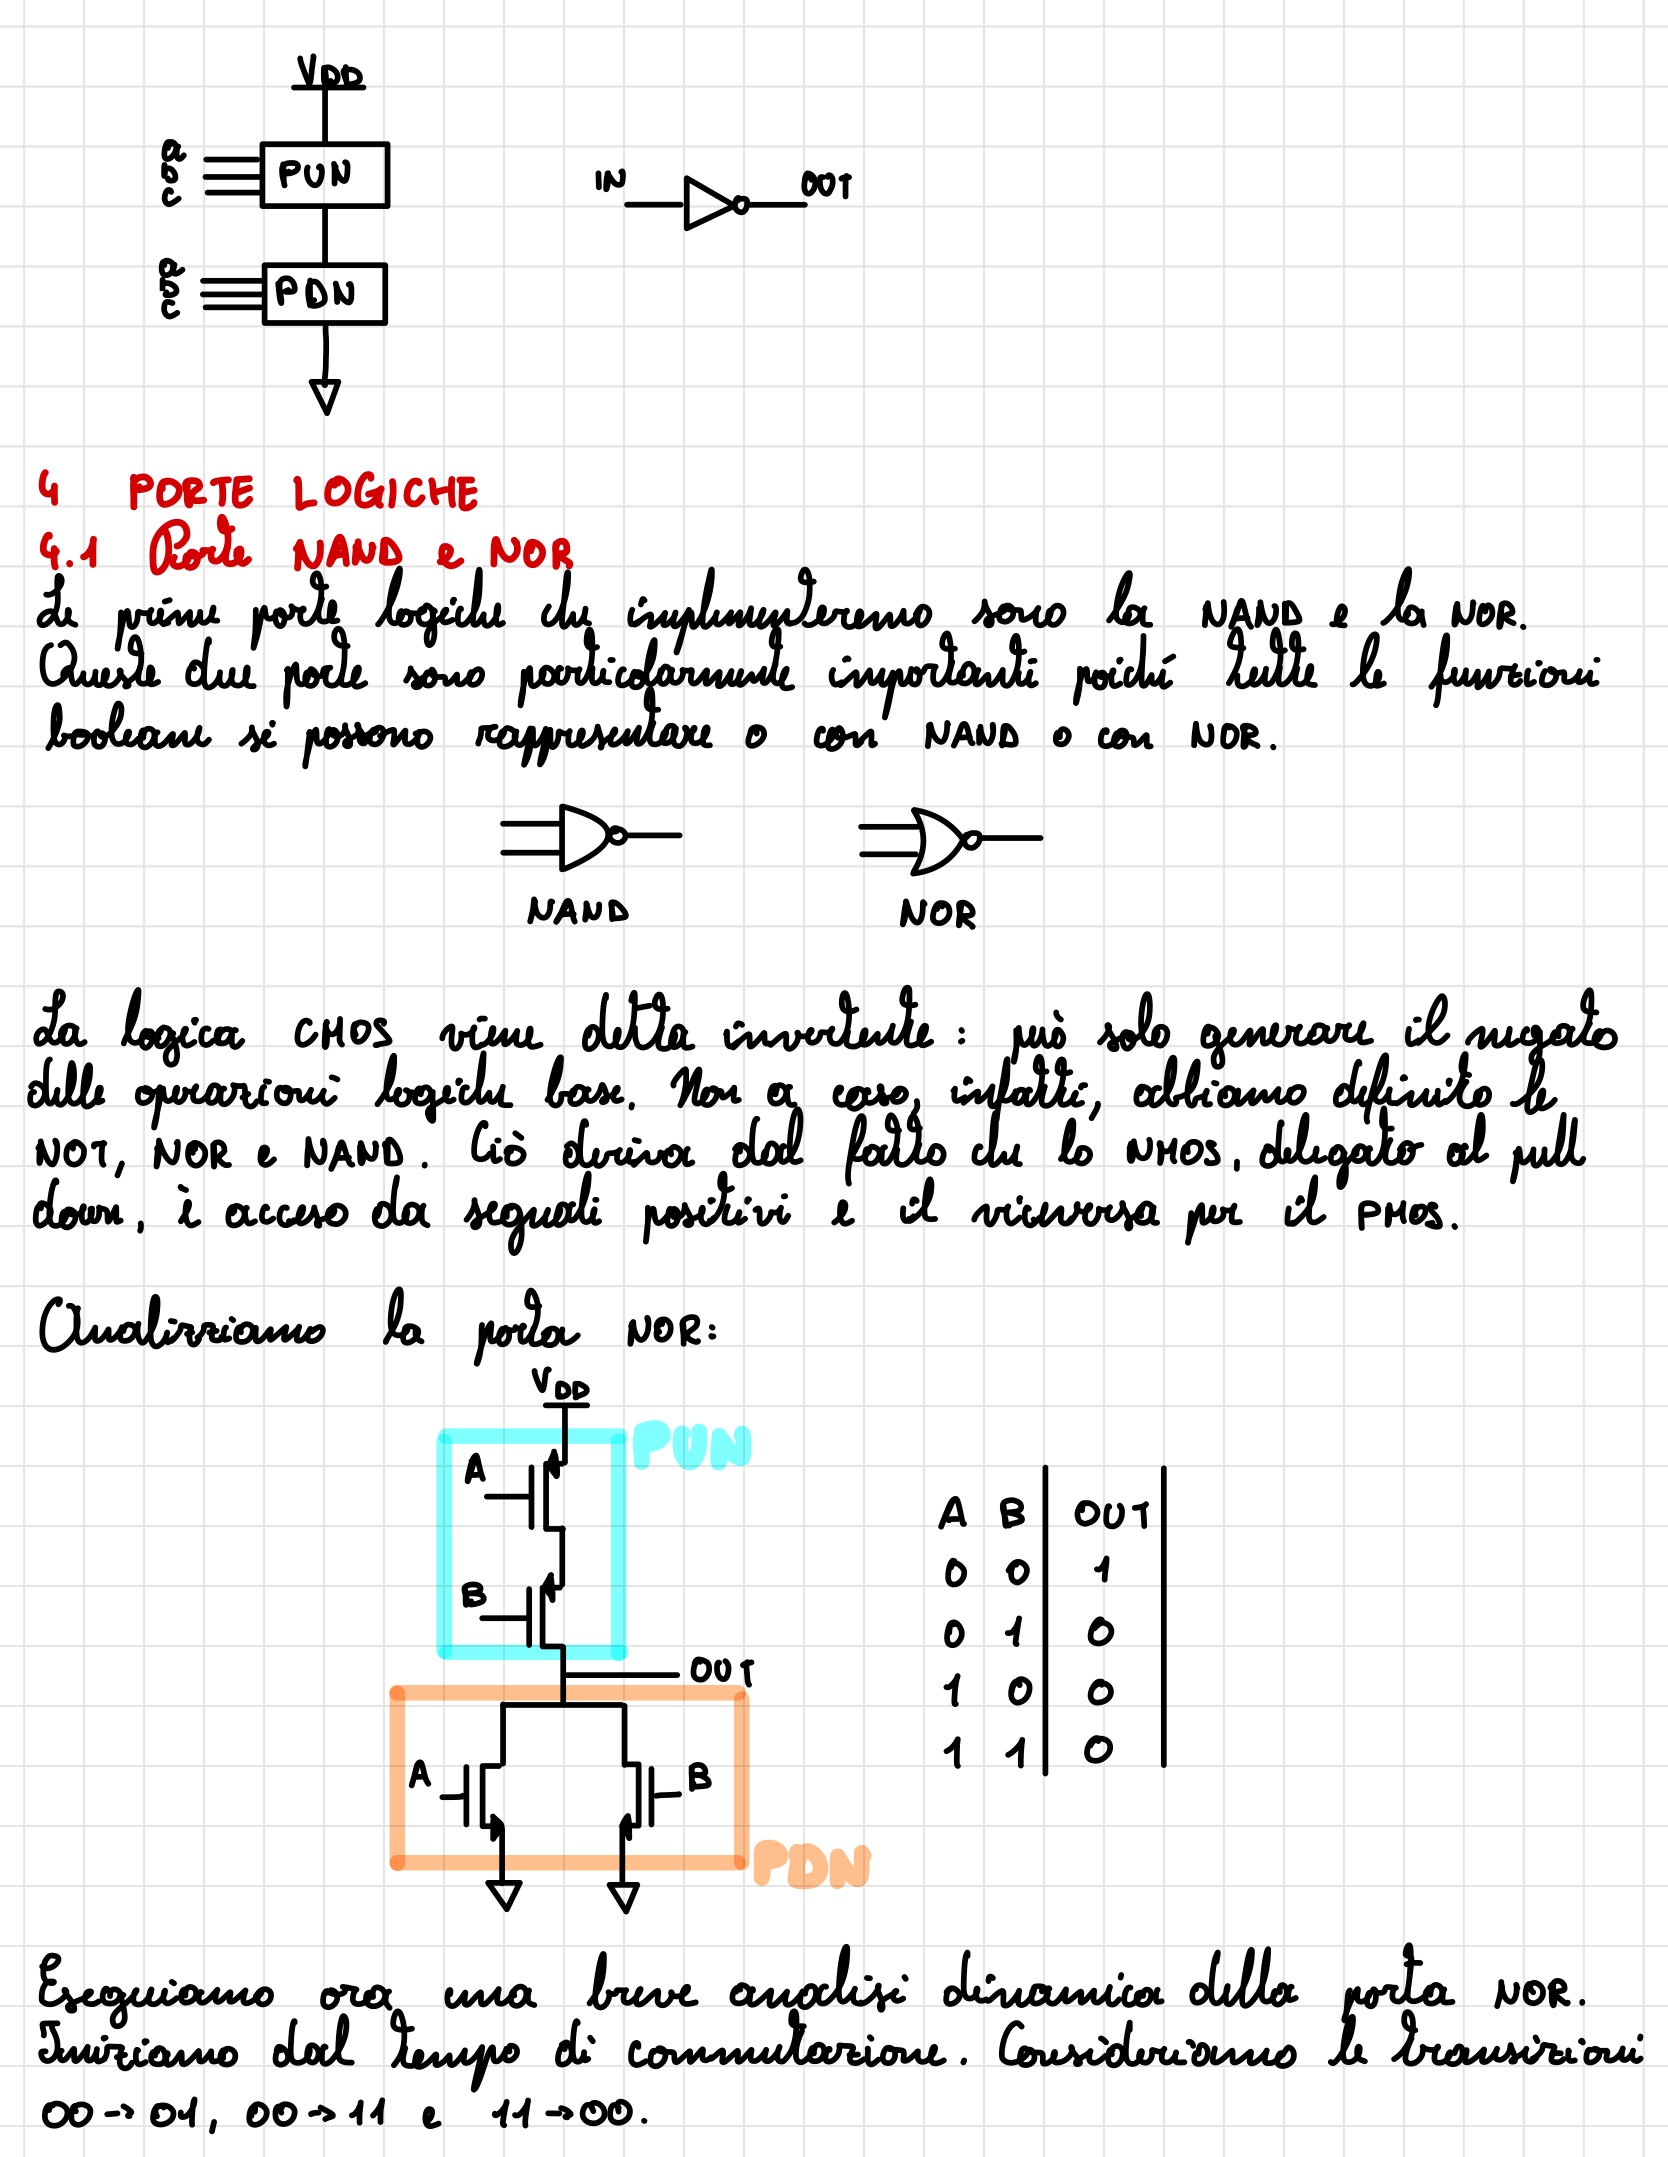 VDD
a
b
c
PUN
IN
OUT
a
b
c
PDN
4 PORTE LOGICHE
4.1 Porte NAND e NOR
Le prime porte logiche che implementeremo sono la NAND e la NOR.
Queste due porte sono particolarmente importanti poiché tutte le funzioni
booleane si possono rappresentare o con NAND o con NOR.
NAND
NOR
La logica CMOS viene detta invertente: può solo generare il negato
delle operazioni logiche base. Non a caso, infatti, abbiamo definito le
NOT, NOR e NAND. Ciò deriva dal fatto che lo NMOS, delegato al pull
down, è acceso da segnali positivi e il viceversa per il PMOS.
Analizziamo la porta NOR:
VDD
PUN
A
B
OUT
A
B
PDN
A B OUT
0 0 1
0 1 0
1 0 0
1 1 0
Eseguiamo ora una breve analisi dinamica della porta NOR.
Iniziamo dal tempo di commutazione. Consideriamo le transizioni
00→01, 00→11 e 11→00.